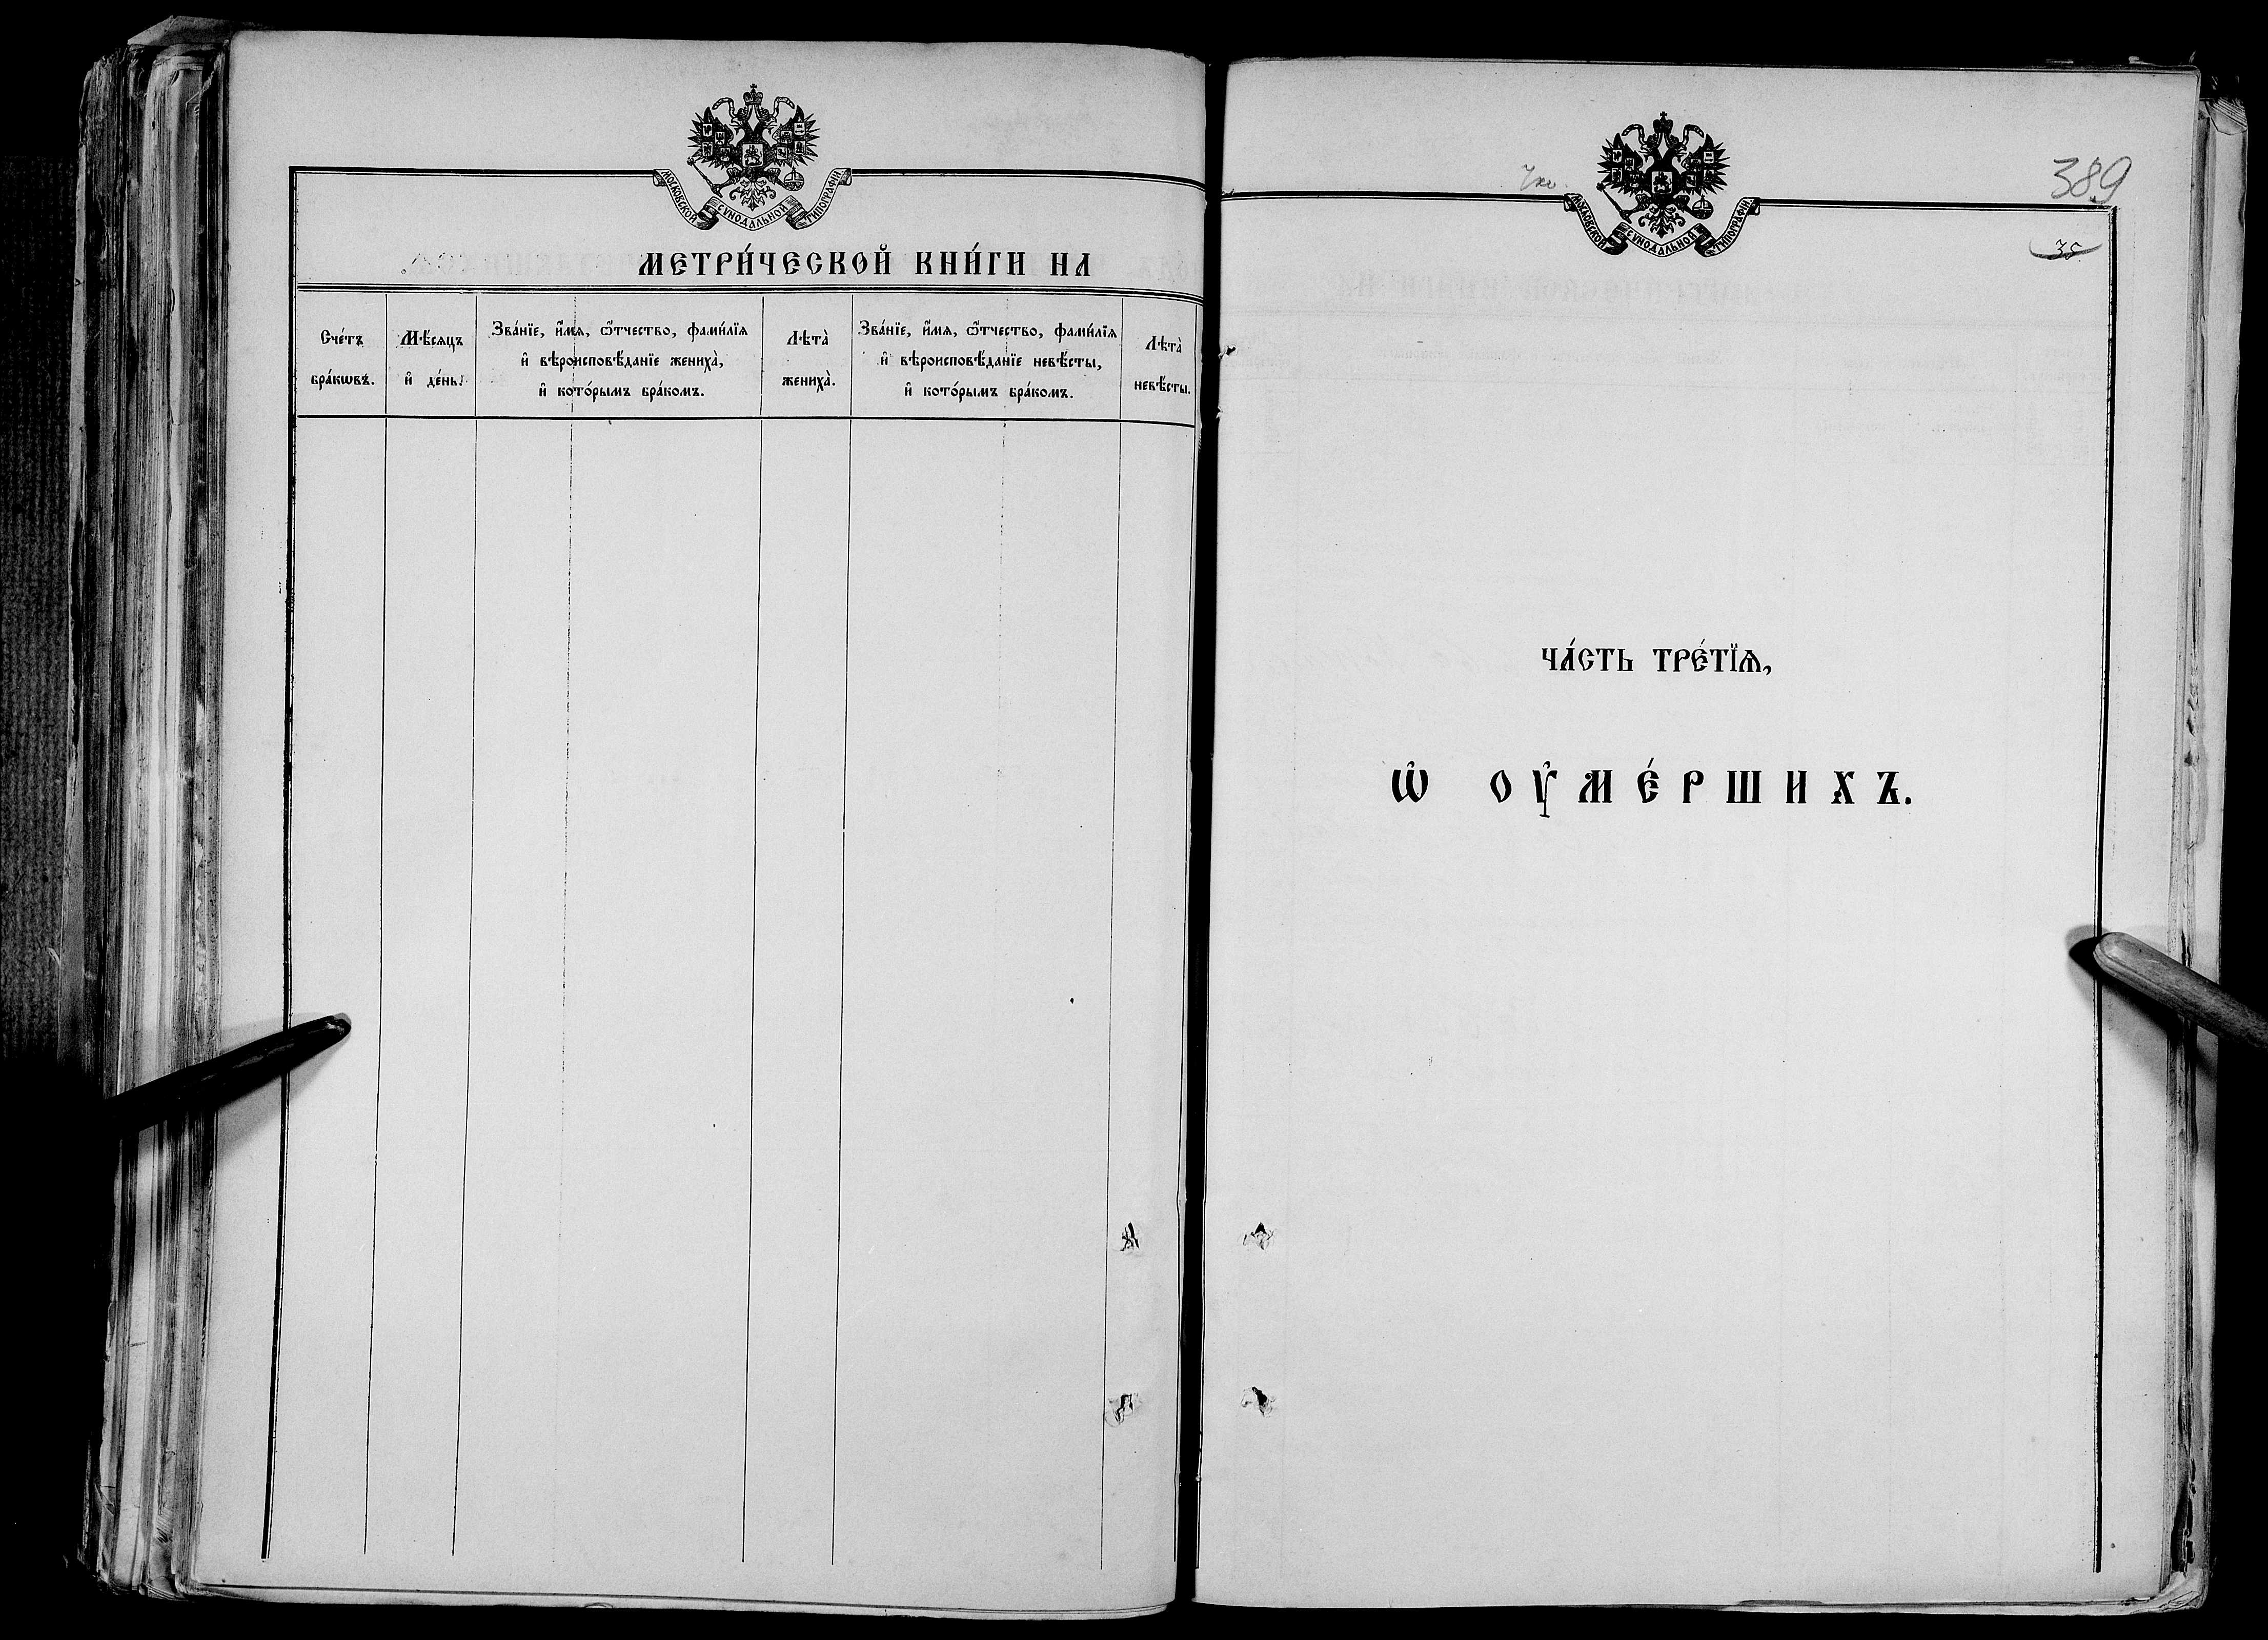 МОСКОВСКОЙ СѴНОДАЛЬНОЙ ТИПОГРАФІИ
МЕТРИ́ЧЕСКОЙ КНИ́ГИ НА
Сче́тъ
бра́кѡвъ.
Мѣ́сяцъ
и҆ де́нь.
Зва́нїе, и҆́мѧ, ѻ҆́тчество, фами́лїѧ
и҆ вѣроисповѣ́данїе жениха̀,
и҆ кото́рымъ бра́комъ.
Лѣта̀
жениха̀.
Зва́нїе, и҆́мѧ, ѻ҆́тчество, фами́лїѧ
и҆ вѣроисповѣ́данїе невѣ́сты,
и҆ кото́рымъ бра́комъ.
Лѣта̀
невѣ́сты.
389
МОСКОВСКОЙ СѴНОДАЛЬНОЙ ТИПОГРАФІИ
35
ЧА́СТЬ ТРЕ́ТЇѦ,
Ѡ҆ ОУ҆МЕ́РШИХЪ.